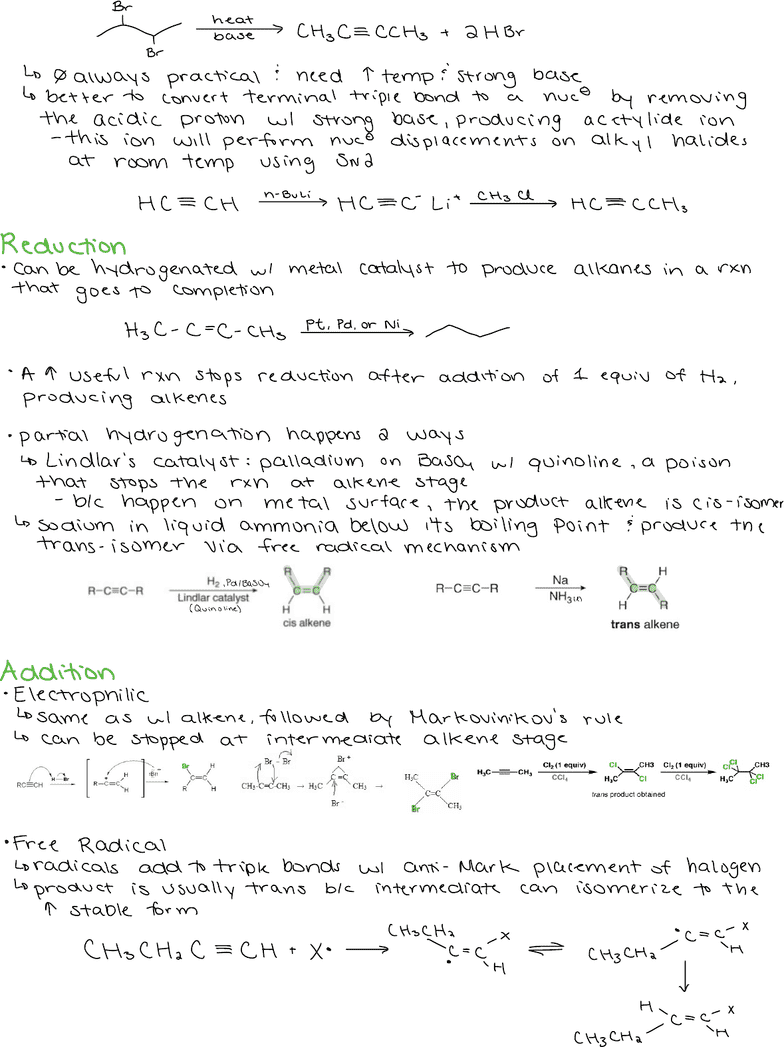 Br
Br
heat
base
CH₃C≡CCH₃ + 2HBr
↳ Ø always practical : need ↑ temp : strong base
↳ better to convert terminal triple bond to a nuc⊖ by removing
the acidic proton w/ strong base, producing acetylide ion
- this ion will perform nuc⊖ displacements on alkyl halides
at room temp using SN2
HC≡CH n-BuLi → HC≡C⁻ Li⁺ CH₃Cl → HC≡CCH₃
Reduction
• can be hydrogenated w/ metal catalyst to produce alkanes in a rxn
that goes to completion
H₃C-C=C-CH₃ Pt, Pd, or Ni →
• A ↑ useful rxn stops reduction after addition of 1 equiv of H₂,
producing alkenes
• partial hydrogenation happens 2 ways
↳ Lindlar's catalyst: palladium on BaSO₄ w/ quinoline, a poison
that stops the rxn at alkene stage
- b/c happen on metal surface, the product alkene is cis-isomer
↳ sodium in liquid ammonia below its boiling point : produce the
trans-isomer via free radical mechanism
R-C≡C-R H₂, Pd/BaSO₄ → R R C=C H H
Lindlar catalyst
(Quinoline)
cis alkene
R-C≡C-R Na → R H C=C H R
NH₃(l)
trans alkene
Addition
• Electrophilic
↳ same as w/ alkene, followed by Markovinikov's rule
↳ can be stopped at intermediate alkene stage
RC≡CH H-Br → [R-C=C H H] :Br:⁻ → Br H C=C R H
Br-Br CH₃-C≡C-CH₃ → H₃C C=C CH₃ Br⁺ Br⁻ → H₃C Br C=C Br CH₃
H₃C CH₃ Cl₂ (1 equiv) CCl₄ → Cl CH3 H₃C Cl Cl₂ (1 equiv) CCl₄ → Cl Cl CH3 H₃C Cl Cl
trans product obtained
• Free Radical
↳ radicals add to triple bonds w/ anti-Mark placement of halogen
↳ product is usually trans b/c intermediate can isomerize to the
↑ stable form
CH₃CH₂C≡CH + X• → CH₃CH₂ C=C X H ⇌ CH₃CH₂ •C=C X H
H C=C X CH₃CH₂ H